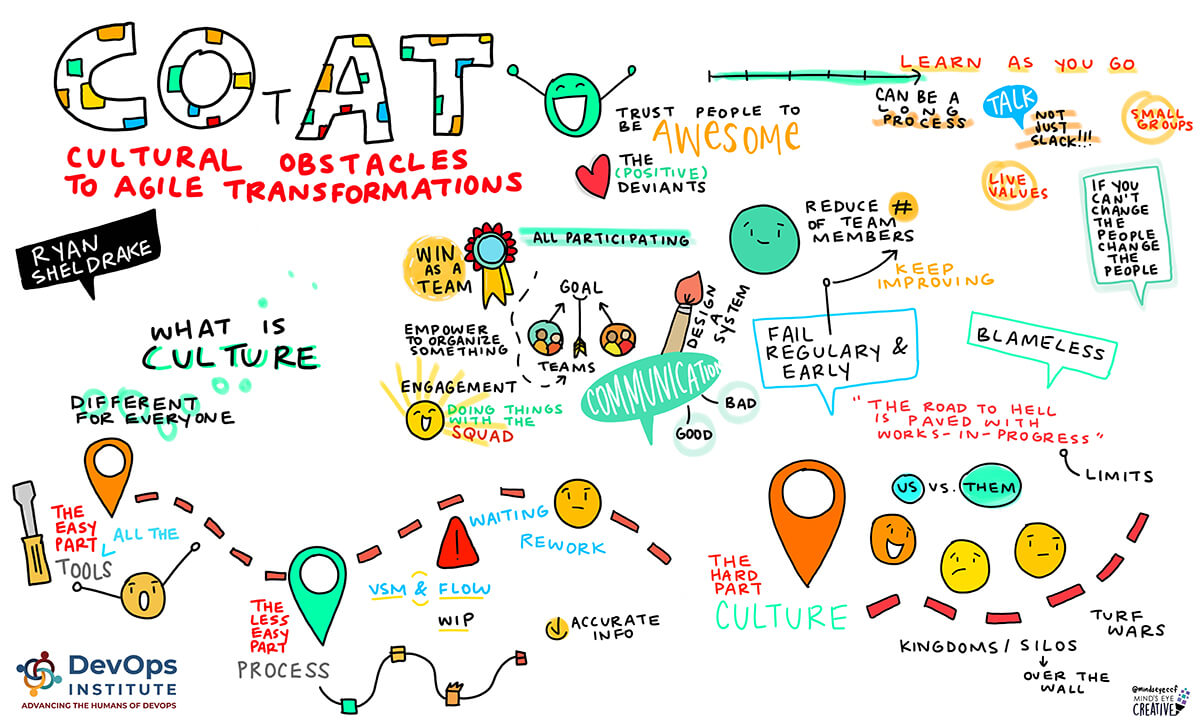 COTAT
CULTURAL OBSTACLES
TO AGILE TRANSFORMATIONS
RYAN
SHELDRAKE
TRUST PEOPLE TO
BE AWESOME
THE
(POSITIVE)
DEVIANTS
LEARN AS YOU GO
CAN BE A
LONG
PROCESS
TALK
NOT
JUST
SLACK!!!
SMALL
GROUPS
LIVE
VALUES
IF YOU
CAN'T
CHANGE
THE
PEOPLE
CHANGE
THE
PEOPLE
WHAT IS
CULTURE
DIFFERENT
FOR EVERYONE
WIN
AS A
TEAM
ALL PARTICIPATING
GOAL
TEAMS
EMPOWER
TO ORGANIZE
SOMETHING
ENGAGEMENT
DOING THINGS
WITH THE
SQUAD
DESIGN
A
SYSTEM
COMMUNICATION
BAD
GOOD
REDUCE #
OF TEAM
MEMBERS
KEEP
IMPROVING
FAIL
REGULARY &
EARLY
BLAMELESS
"THE ROAD TO HELL
IS PAVED WITH
WORKS-IN-PROGRESS"
LIMITS
THE
EASY
PART
ALL THE
TOOLS
THE
LESS
EASY
PART
PROCESS
WAITING
REWORK
VSM & FLOW
WIP
ACCURATE
INFO
THE
HARD
PART
CULTURE
US VS. THEM
KINGDOMS/SILOS
OVER THE
WALL
TURF
WARS
DevOps
INSTITUTE
ADVANCING THE HUMANS OF DEVOPS
@mindseyeccf
MIND'S EYE
CREATIVE